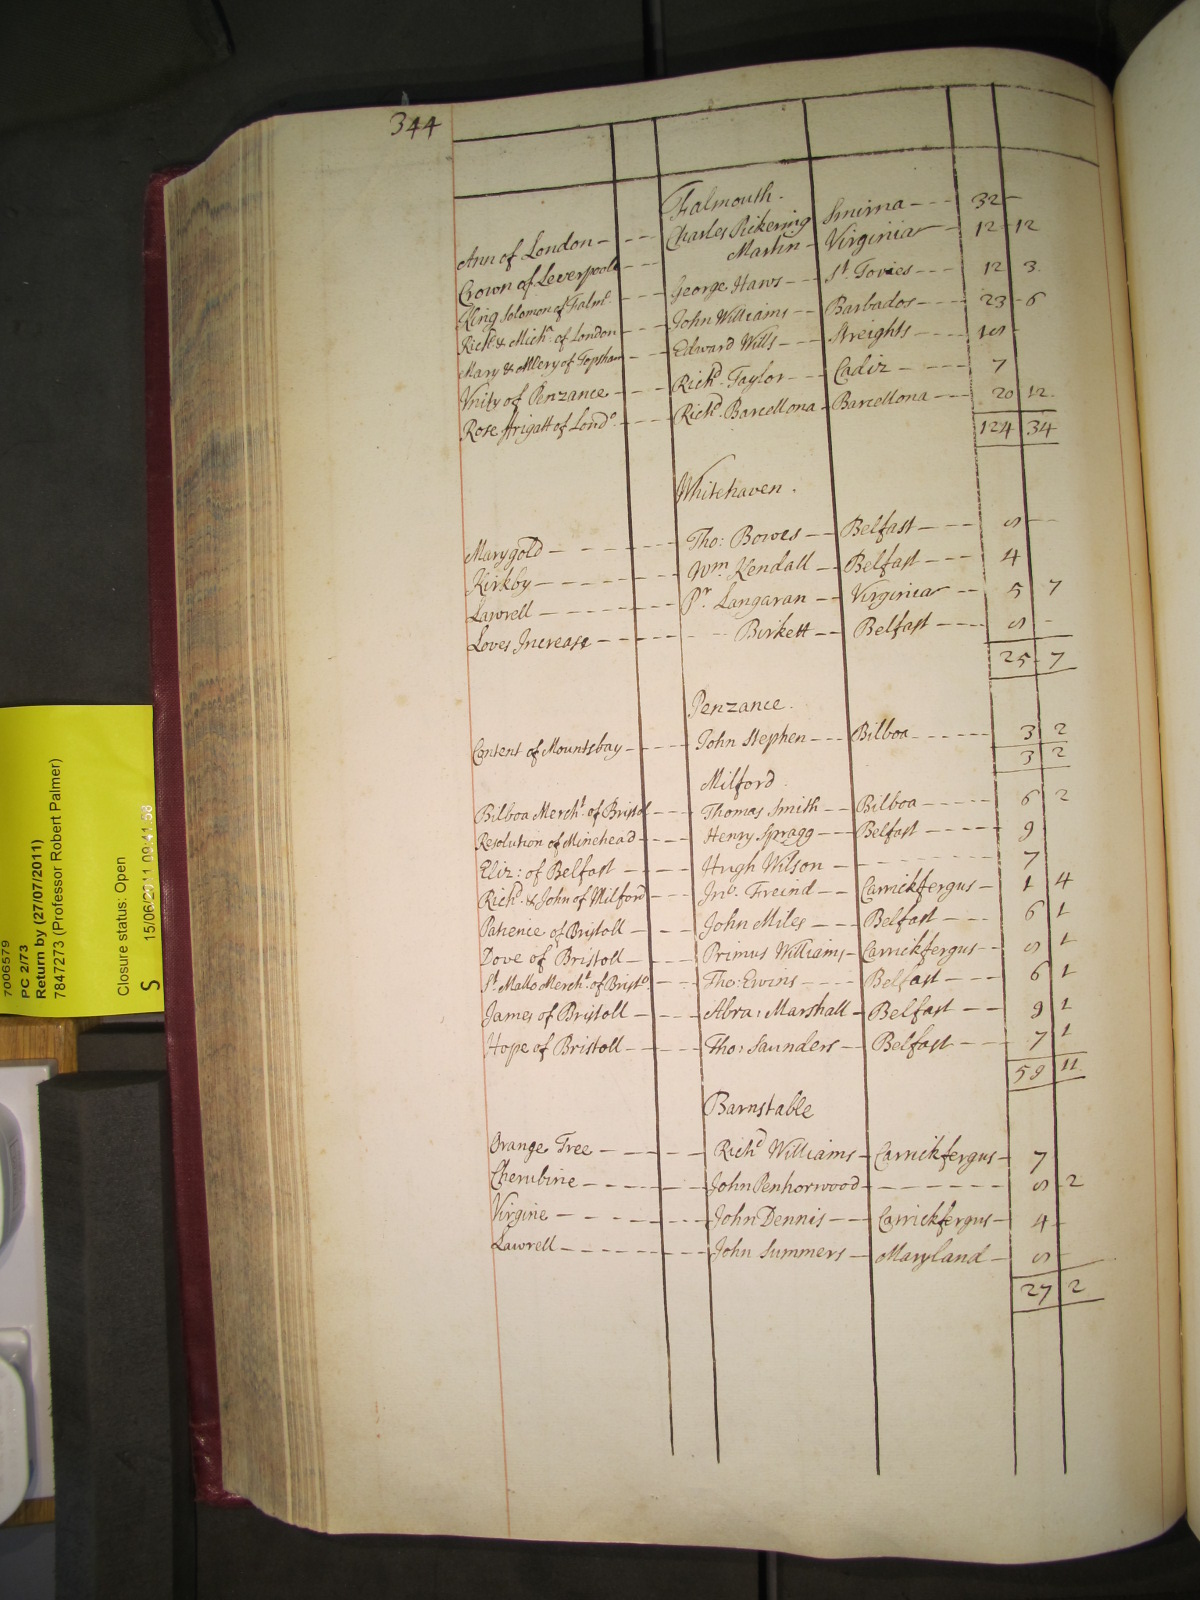 344
Falmouth.
Ann of London - - - Charles Pickering Smirna - - - 32 -
Crown of Leverpoole - - Martin - Virginia - 12 - 12
King Solomon of Falmo. - - George Haws - - St. Tovies - - - 12 3.
Richd. & Micha. of London - - John Williams - - Barbados - - - 23 - 6
Mary & Mery of Topsham - - Edward Wills - - Streights - - - 18 -
Vnity of Penzance - - - Richd. Taylor - - Cadiz - - - 7
Rose ffrigatt of Londo. - - Richd. Barcellona - Barcellona - - - 20 12.
124 34
Whitehaven.
Marygold - - - - - Tho: Bowes - - Belfast - - - 8 - -
Kirkby - - - - - - Wm. Kendall - - Belfast - - - 4
Lawrell - - - - - - Pr. Langaran - - Virginia - - 5 7
Loves Increase - - - - - Birkett - - Belfast - - - 8 -
25 - 7
Penzance.
Content of Mountsbay - - - - John Stephen - - - Bilboa - - - - - 3 2
3 2
Milford.
Bilboa Mercht. of Bristol - - Thomas Smith - - Bilboa - - - - - 6 2
Resolution of Minehead - - - Henry Spragg - - Belfast - - - - - 9
Eliz: of Belfast - - - - Hugh Wilson - - - - - - - - 7
Richd. & John of Milford - - Jno. Freind - - Carrickfergus - 1 4
Patience of Bristoll - - - John Miles - - - Belfast - - - 6 1
Dove of Bristoll - - - Primus Williams - Carrickfergus - - 8 1
St. Mallo Mercht. of Bristo. - - Tho: Ewins - - - Belfast - - 6 1
James of Bristoll - - - - Abra: Marshall - Belfast - - - 9 1
Hope of Bristoll - - - - Tho: Saunders - - Belfast - - - 7 1
59 11
Barnstable
Orange Tree - - - - - Richd. Williams - Carrickfergus - 7
Cherubine - - - - - John Penhorwood - - - - - - 8 - 2
Virgine - - - - - - John Dennis - - - Carrickfergus - 4 -
Lawrell - - - - - - John Summers - - Maryland - 8 -
27 2
7006579
PC 2/73
Return by (27/07/2011)
7847273 (Professor Robert Palmer)
Closure status: Open
S 15/06/2011 09:41:58